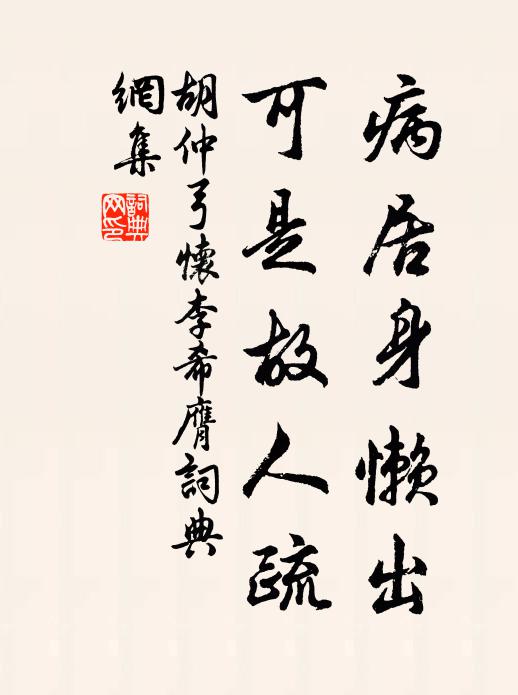 病居身懒出
可是故人疏
胡仲弓懷李希膺詞典
網集
詞典
网印